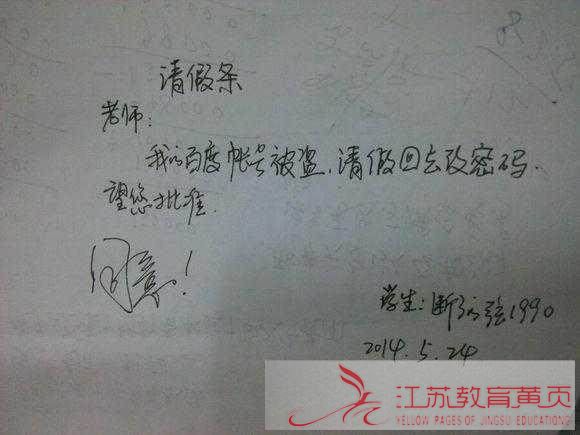 请假条
老师：
我的百度帐号被盗，请假回去改密码．
望您批准．
同意！
学生：断了的弦1990
2014.5.24
江苏教育黄页
YELLOW PAGES OF JINGSU EDUCATION